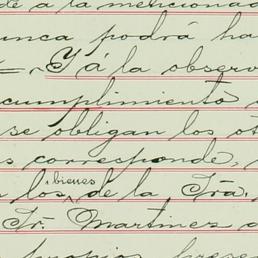 de á la mencionad
unca podrá ha
Y á la observ
cumplimiento
se obligan los ot
s corresponde,
n los bienes de la Sra.
Sr. Martinez
propios